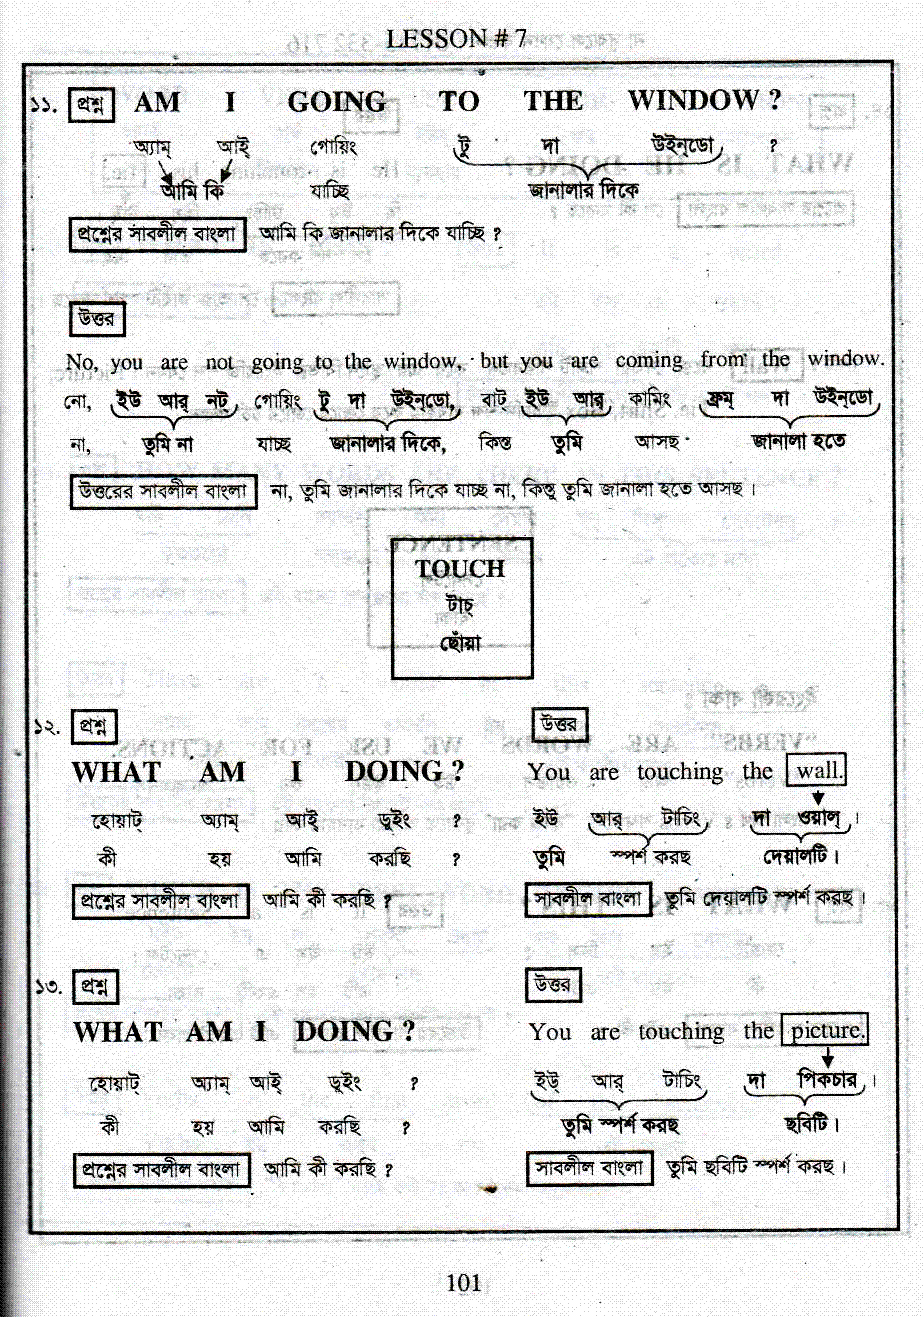 LESSON # 7
১১. প্রশ্ন AM I GOING TO THE WINDOW ?
অ্যাম্ আই্ গোয়িং টু দা উইন্ডো ?
আমি কি যাচ্ছি জানালার দিকে
প্রশ্নের সাবলীল বাংলা আমি কি জানালার দিকে যাচ্ছি ?
উত্তর
No, you are not going to the window, but you are coming from the window.
নো, ইউ আর্ নট্ গোয়িং টু দা উইন্ডো, বাট্ ইউ আর্ কামিং ফ্রম্ দা উইন্ডো
না, তুমি না যাচ্ছ জানালার দিকে, কিন্ত তুমি আসছ জানালা হতে
উত্তরের সাবলীল বাংলা না, তুমি জানালার দিকে যাচ্ছ না, কিন্তু তুমি জানালা হতে আসছ।
TOUCH
টাচ্
ছোঁয়া
১২. প্রশ্ন উত্তর
WHAT AM I DOING ? You are touching the wall.
হোয়াট্ অ্যাম্ আই্ ডূইং ? ইউ আর্ টাচিং দা ওয়াল্।
কী হয় আমি করছি ? তুমি স্পর্শ করছ দেয়ালটি।
প্রশ্নের সাবলীল বাংলা আমি কী করছি ? সাবলীল বাংলা তুমি দেয়ালটি স্পর্শ করছ।
১৩. প্রশ্ন উত্তর
WHAT AM I DOING ? You are touching the picture.
হোয়াট্ অ্যাম্ আই্ ডূইং ? ইউ্ আর্ টাচিং দা পিকচার।
কী হয় আমি করছি ? তুমি স্পর্শ করছ ছবিটি।
প্রশ্নের সাবলীল বাংলা আমি কী করছি ? সাবলীল বাংলা তুমি ছবিটি স্পর্শ করছ।
101